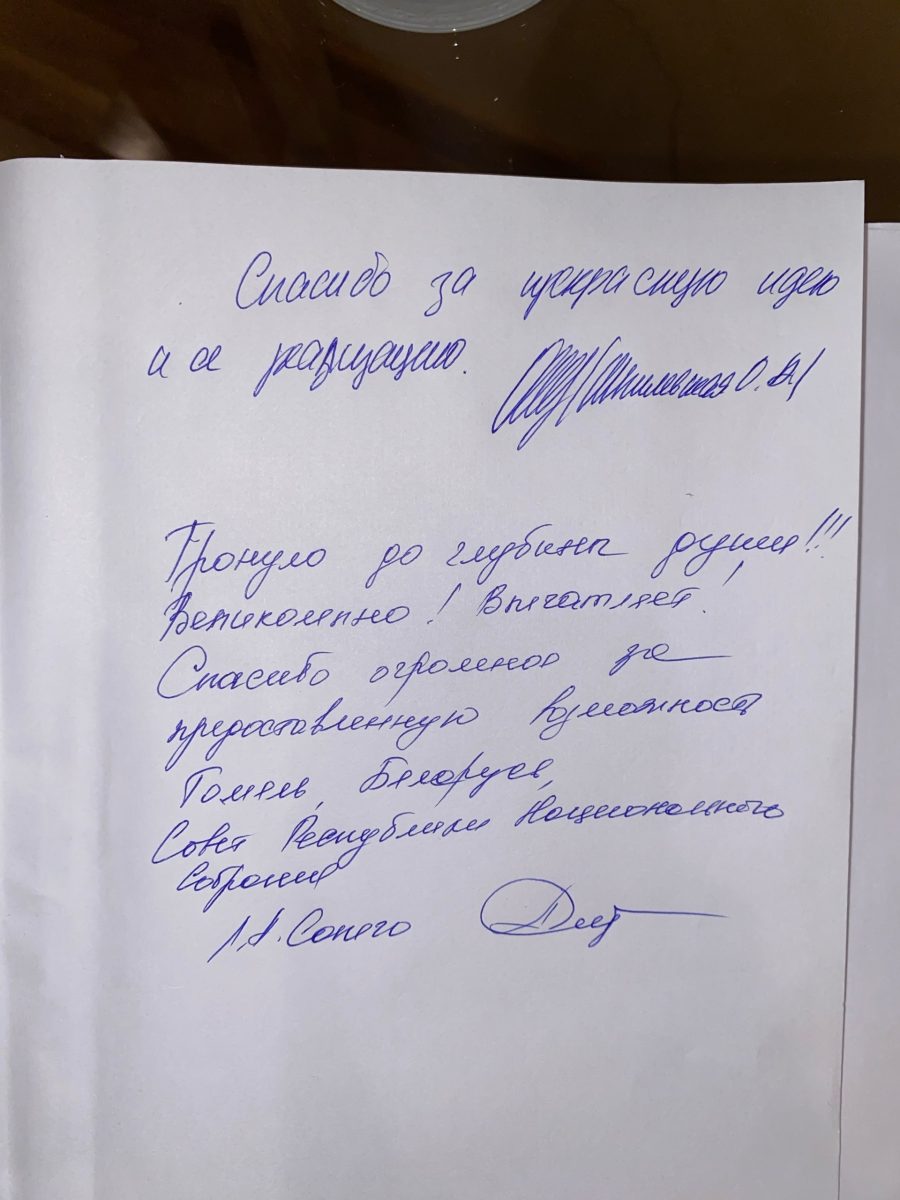 Спасибо за прекрасную идею
и ее реализацию.
О. А.
Тронуло до глубины души!!!
Великолепно! Впечатляет!
Спасибо огромное за
предоставленную возможность
Гомель, Беларусь,
Совет Республики Национального
Собрания